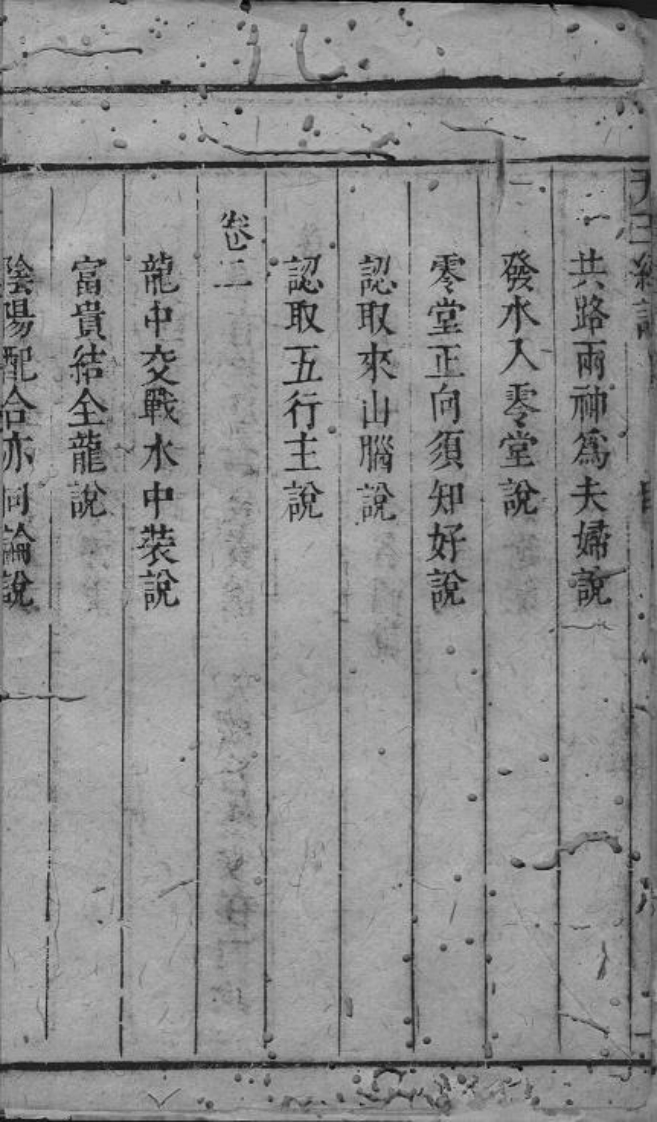 共路兩神爲夫婦說
發水入零堂說
零堂正向須知好說
認取來山腦說
認取五行主說
卷二
龍中交戰水中裝說
富貴結全龍說
陰陽配合亦同論說